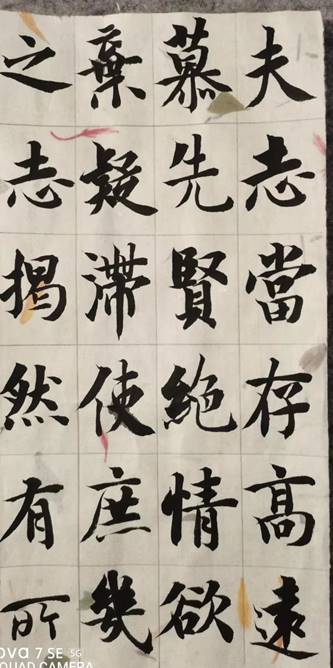 夫志當存高遠
慕先賢絕情欲
棄疑滯使庶幾
之志揭然有所
nova 7 SE 5G
QUAD CAMERA